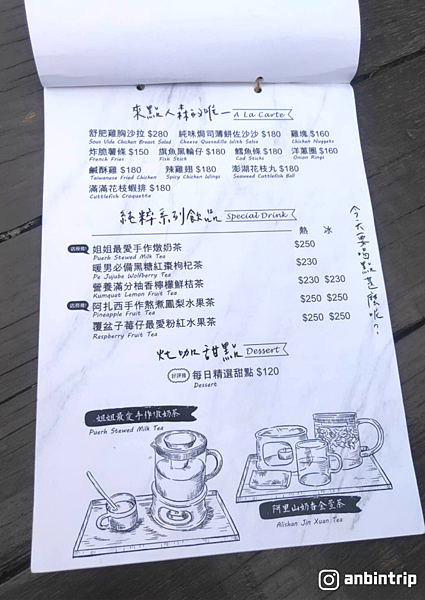 來點人森的唯一 A La Carte
舒肥雞胸沙拉 $280 純味焗司薄餅佐沙沙 $180 雞塊 $160
Sous Vide Chicken Breast Salad Cheese Quesadilla With Salsa Chicken Nuggets
炸脆薯條 $150 旗魚黑輪仔 $180 鱈魚條 $180 洋蔥圈 $160
French Fries Fish Stick Cod Sticks Onion Rings
鹹酥雞 $180 辣雞翅 $180 澎湖花枝丸 $180
Taiwanese Fried Chicken Spicy Chicken Wings Seaweed Cuttlefish Ball
滿滿花枝蝦排 $180
Cuttlefish Croquette
純粹系列飲品 Special Drink
熱 冰
姐姐最愛手作燉奶茶 $250
Puerh Stewed Milk Tea
暖男必備黑糖紅棗枸杞茶 $230
Pu Jujube Wolfberry Tea
營養滿分柚香檸檬鮮桔茶 $230 $230
Kumquat Lemon Fruit Tea
阿扎西手作熬煮鳳梨水果茶 $250 $250
Pineapple Fruit Tea
覆盆子莓仔最愛粉紅水果茶 $250 $250
Raspberry Fruit Tea
今天要喝點這麼呢？
甜點 Dessert
每日精選甜點 $120
Dessert
姐姐最愛手作燉奶茶
Puerh Stewed Milk Tea
阿里山奶香金萱茶
Alishan Jin Xuan Tea
anbintrip